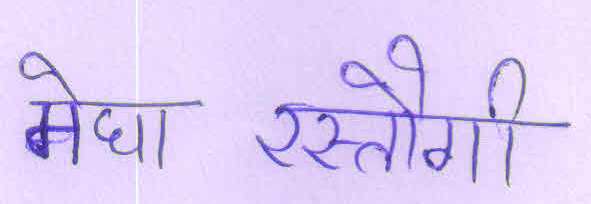 मेघा रस्तौगी